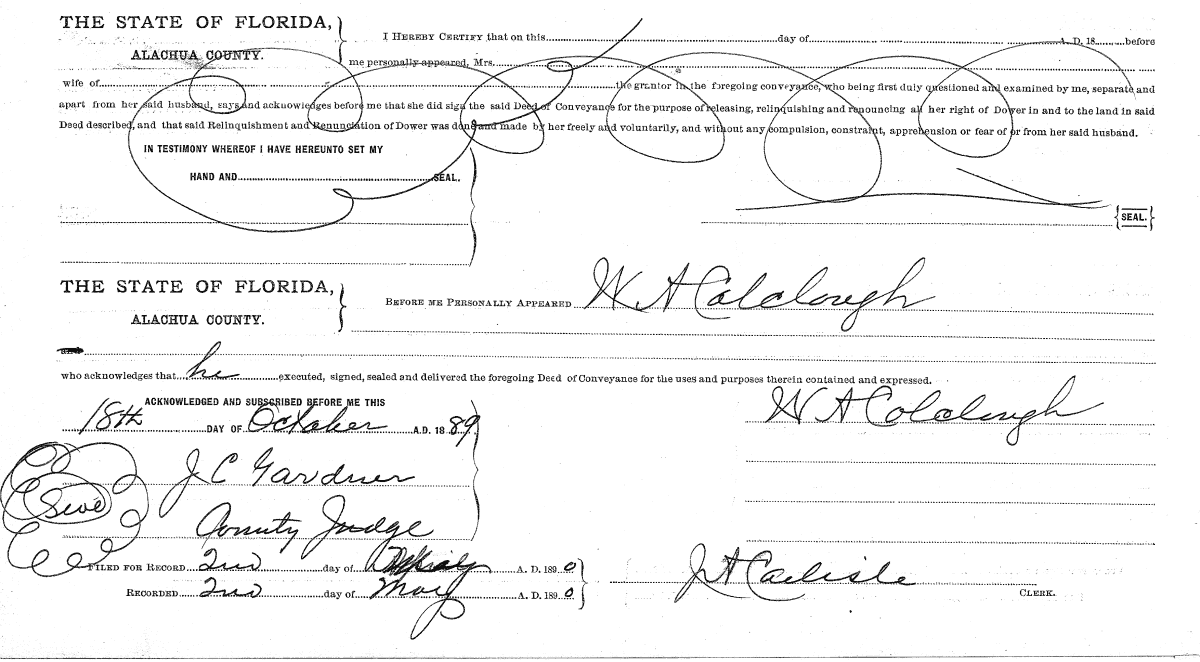 THE STATE OF FLORIDA,
ALACHUA COUNTY.
I HEREBY CERTIFY that on this day of A. D. 18 before
me personally appeared, Mrs.
wife of the grantor in the foregoing conveyance, who being first duly questioned and examined by me, separate and
apart from her said husband, says and acknowledges before me that she did sign the said Deed of Conveyance for the purpose of releasing, relinquishing and renouncing all her right of Dower in and to the land in said
Deed described, and that said Relinquishment and Renunciation of Dower was done and made by her freely and voluntarily, and without any compulsion, constraint, apprehension or fear of or from her said husband.
IN TESTIMONY WHEREOF I HAVE HEREUNTO SET MY
HAND AND SEAL.
{SEAL.}
THE STATE OF FLORIDA,
ALACHUA COUNTY.
BEFORE ME PERSONALLY APPEARED W A Colclough
who acknowledges that he executed, signed, sealed and delivered the foregoing Deed of Conveyance for the uses and purposes therein contained and expressed.
ACKNOWLEDGED AND SUBSCRIBED BEFORE ME THIS
18th DAY OF October A.D. 1889
W A Colclough
J C Gardner
County Judge
FILED FOR RECORD 2nd day of A. D. 1890
RECORDED 2nd day of May A. D. 1890
J A Carlisle
CLERK.